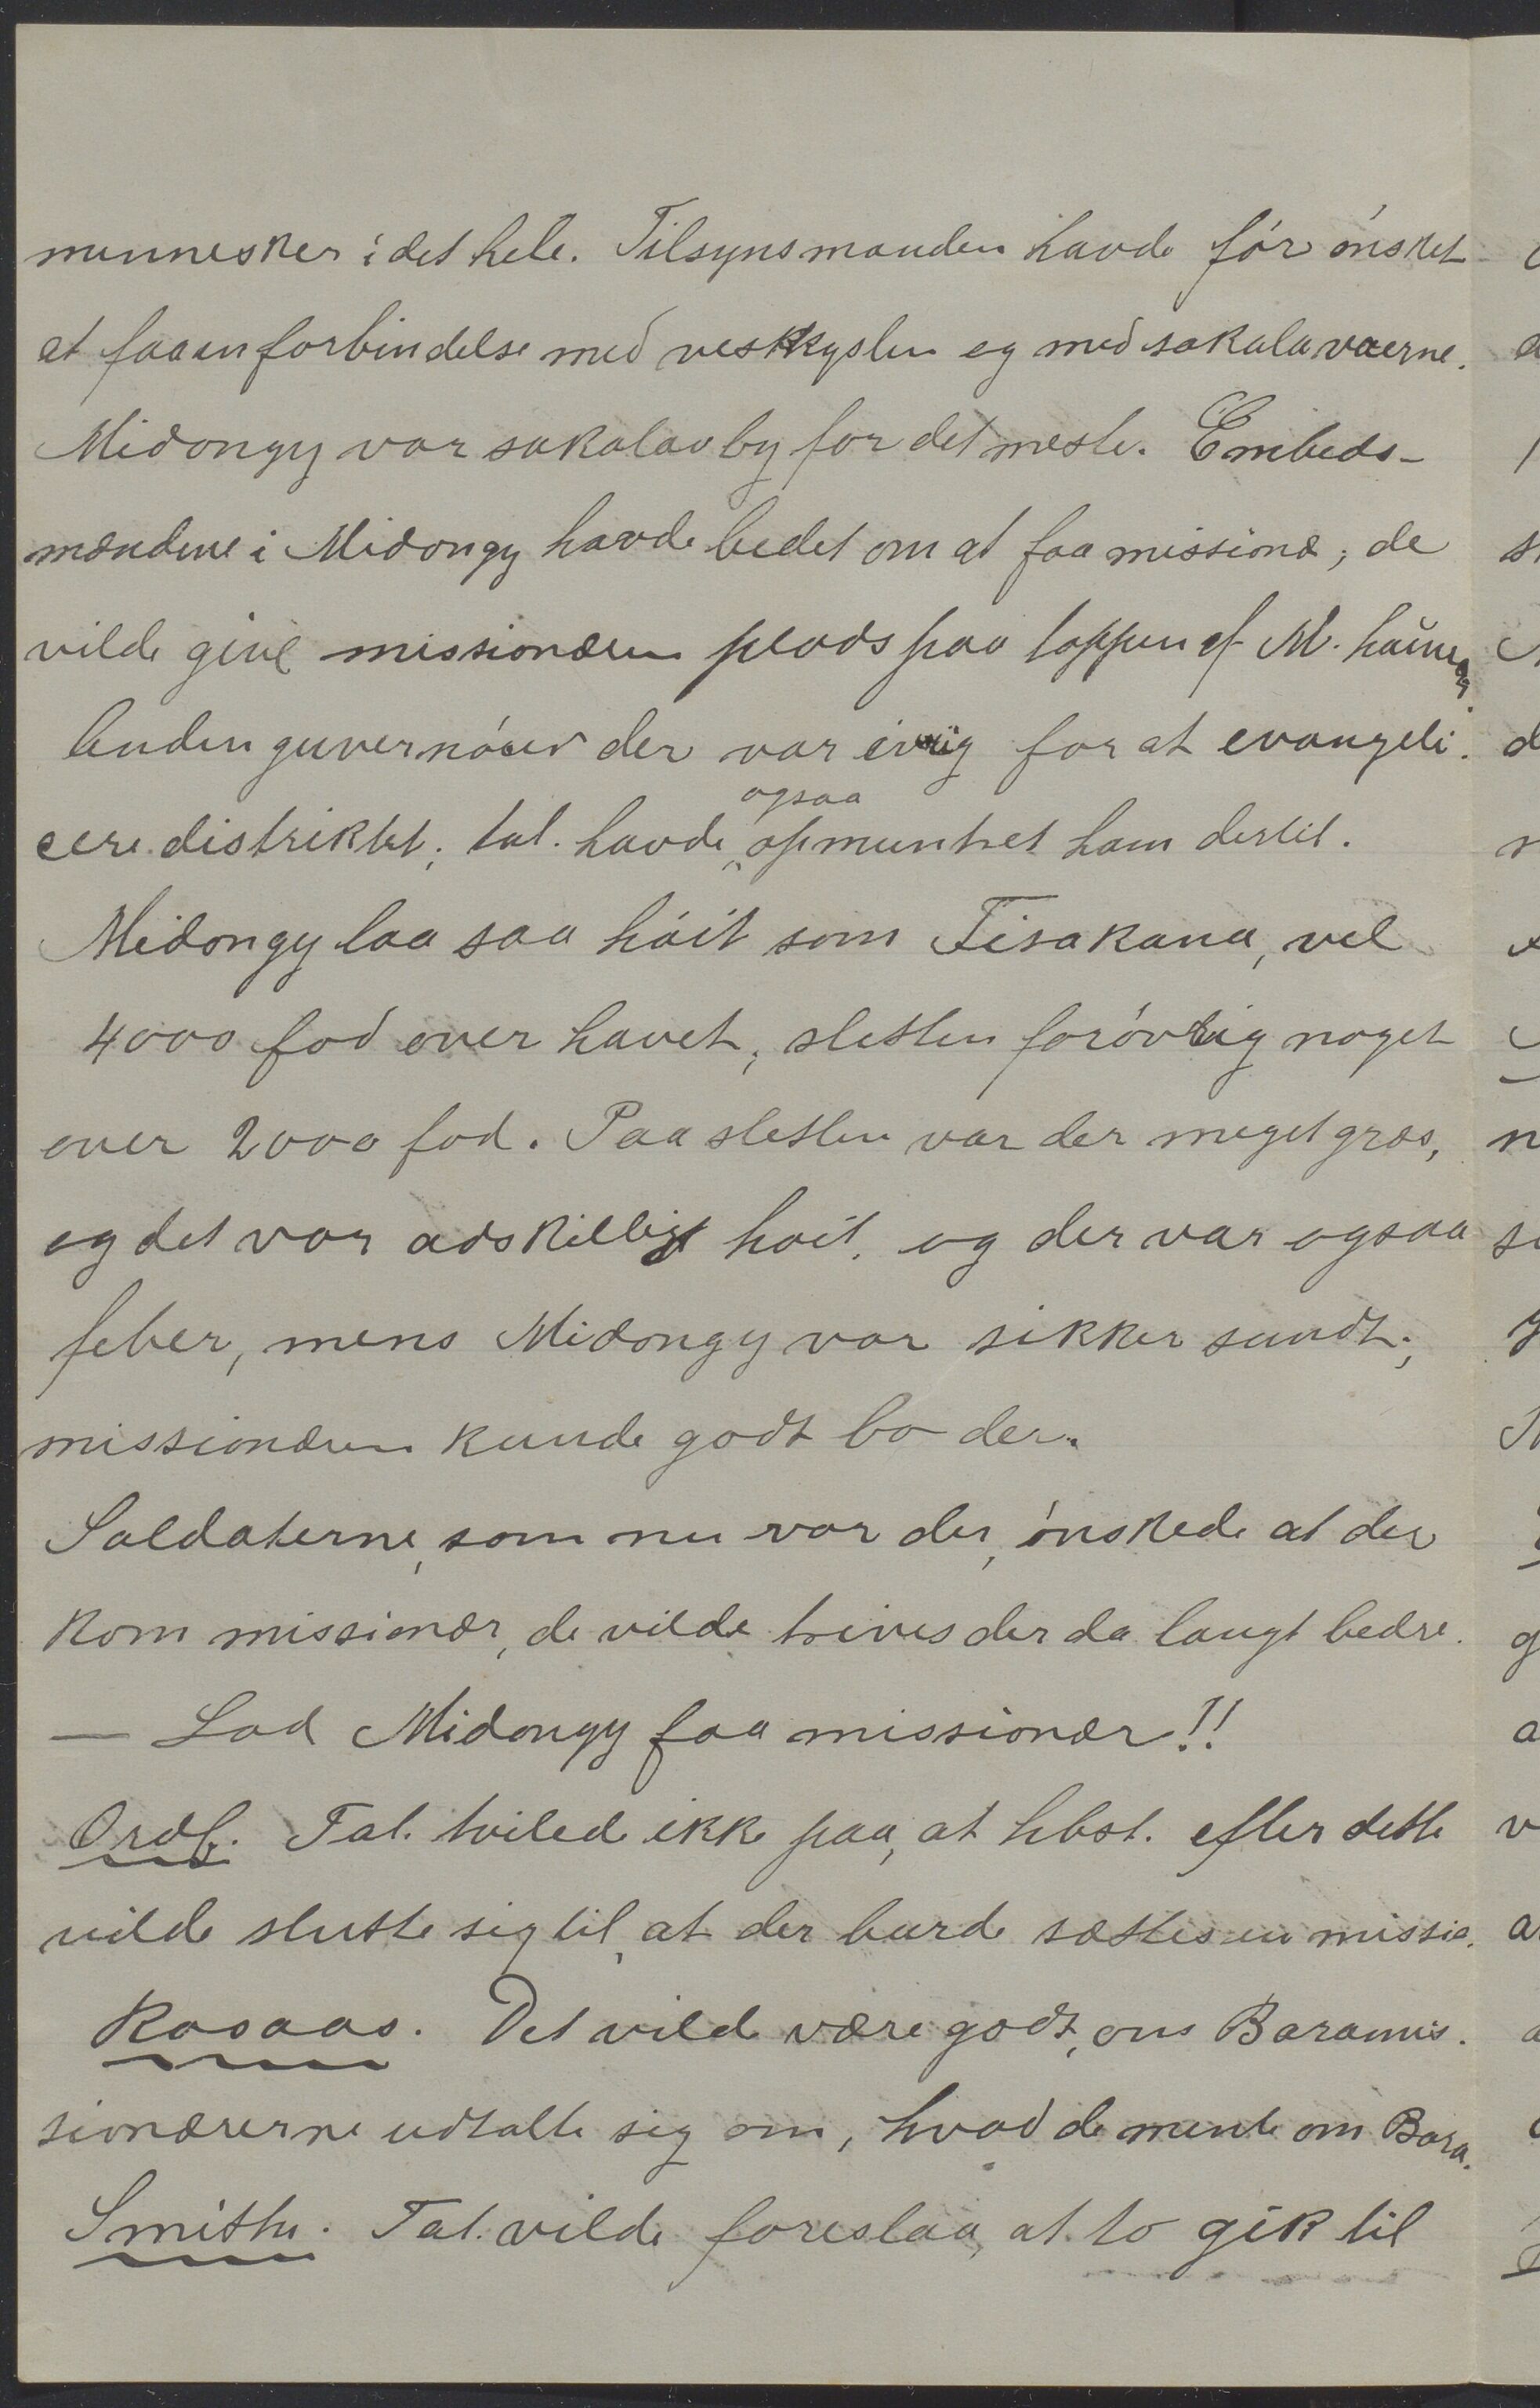 mennesker i det hele. Tilsynsmanden havde før ønsket
at faa en forbindelse med vestkysten og med sakalavaerne.
Midongy var sakalavby for det meste. Embeds-
mændene i Midongy havde bedet om at faa missionæ, de
vilde give missionæren plads paa toppen af M.
Anden guvernøren der var ivrig for at evangeli.
cere distriktet; tal. havde ogsaa opmuntret ham dertil.
Midongy laa saa høit som Fisakana, vel
4000 fod over havet, sletten forøvrig noget
over 2000 fod. Paa sletten var der meget græs,
og det var adskilligt høit, og der var ogsaa
feber, mens Midongy var sikker sundt;
missionæren kunde godt bo der.
Soldaterne, som nu var der, ønskede at der
kom missionær, de vilde trives der da langt bedre.
— Lad Midongy faa missionær!!
Ordf. Tal. tvilede ikke paa, at hbst. efter dette
vilde slutte sig til, at der burde sættes en missio.
Rosaas. Det vilde være godt, om Baramis.
sionærerne udtalte sig om, hvad de mente om Bara.
Smith. Tal. vilde foreslaa, at to gik til